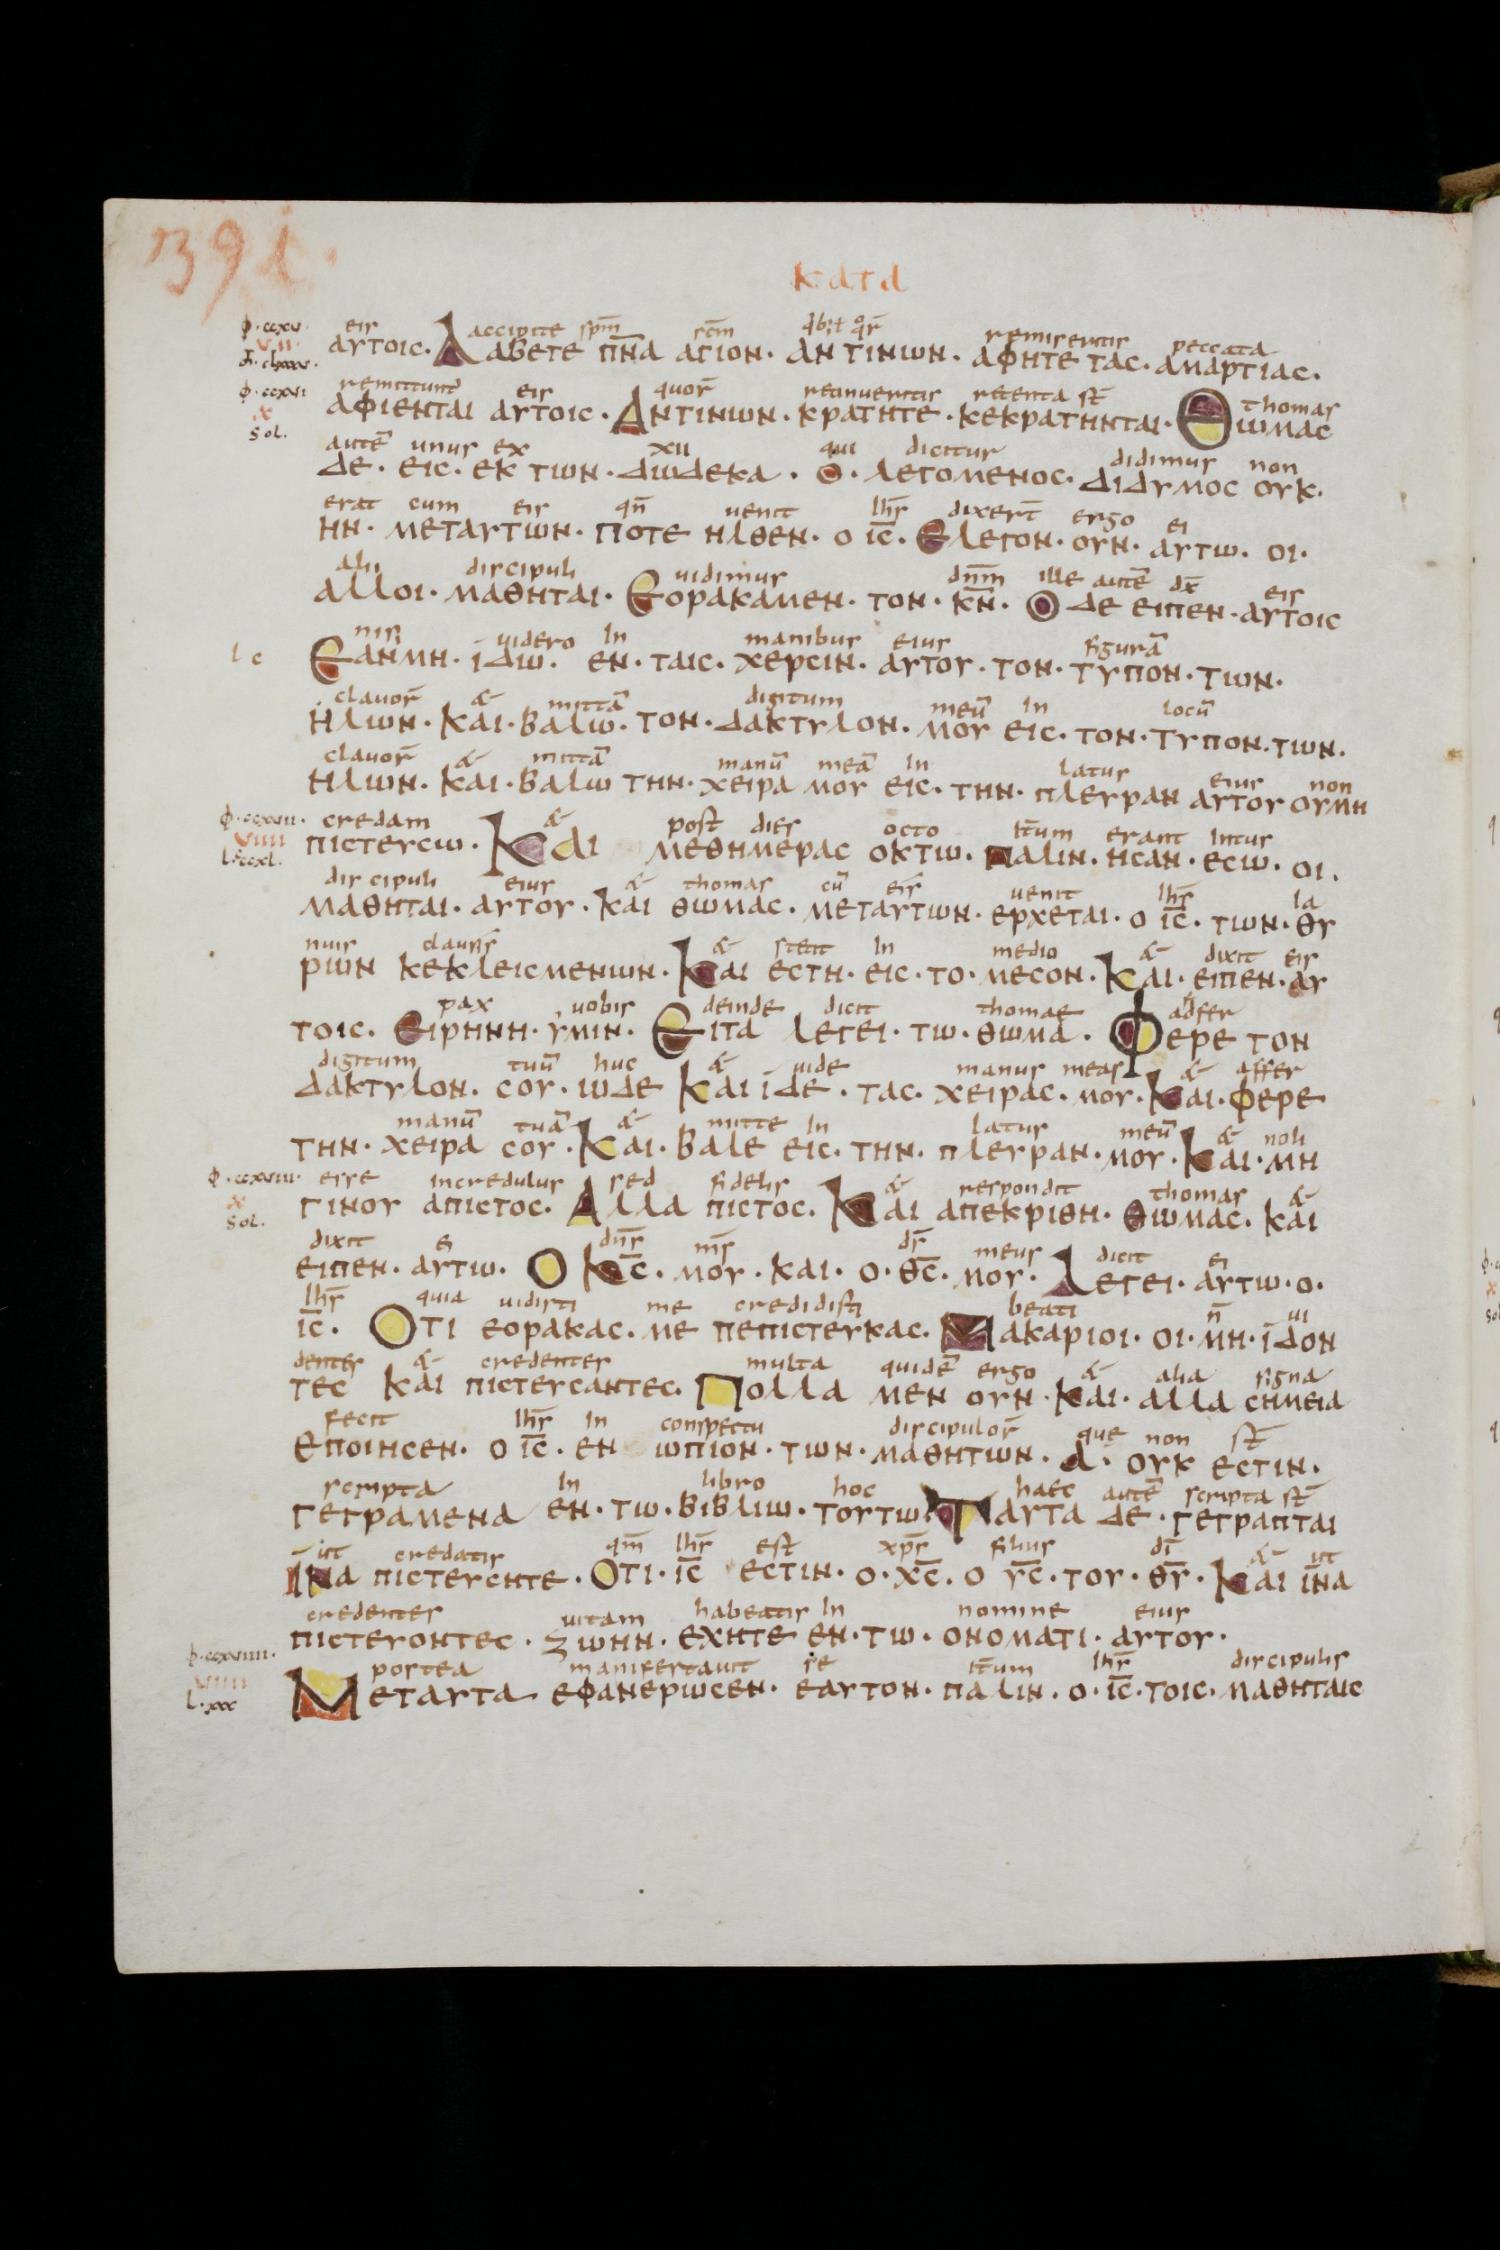 391.
κατα
φ·ccxv· eis accipite spm̄ scm̄ qb; ł qr̄ remiseritis peccata
VII αυτοις· Λαβετε π̅ν̅α αγιον· αν τινων· αφητε τας· αμαρτιας·
φ·ccxvi remittunt̄ eis quor̄ retinueritis retenta st̄ thomas
x αφιενται αυτοις· Αν τινων· κρατητε· κεκρατηνται· Θωμας
sol. autē unus ex xii qui dicitur didimus non
δε· εις· εκ των· δωδεκα· ο· λεγομενος· διδυμος ουκ·
erat cum eis qn̄ uenit ih̄s dixer̄t ergo ei
ην· μεταυτων· ποτε ηλθεν· ο ι̅ς̅· Ελεγον· ουν· αυτω· οι·
alii discipuli uidimus dn̄m ille autē dx̄ eis
αλλοι· μαθηται· Εορακαμεν· τον· κ̅ν̅· Ο δε ειπεν· αυτοις
nisi uidero in manibus eius figurā
Εανμη· ιδω· εν· ταις· χερσιν· αυτου· τον· τυπον· των·
clauor̄ & mittā digitum meū in locū
ηλων· και· βαλω· τον· δακτυλον· μου εις· τον· τυπον· των·
clauor̄ & mittā manū meā in latus eius non
ηλων· και· βαλω την· χειρα μου εις· την· πλευραν αυτου ουμη
φ·ccxvii· credam & post dies octo it̄um erant intus
VIIII πιστευσω· Και μεθημερας οκτω· παλιν· ησαν· εσω· οι·
l·ccxl· discipuli eius & thomas cū eis uenit ih̄s ia
μαθηται· αυτου· και θωμας· μεταυτων· ερχεται· ο ι̅ς̅· των· θυ
nuis clausis & stetit in medio & dixit eis
ρων κεκλεισμενων· Και εστη· εις· το· μεσον· Και· ειπεν· αυ
pax uobis deinde dicit thomae adfer
τοις· Ειρηνη· υμιν· Ειτα λεγει· τω· θωμα· Φερε τον
digitum tuū huc & uide manus meas & affer
δακτυλον· σου· ωδε και ιδε· τας· χειρας· μου· Και· φερε
manū tuā & mitte in latus meū & noli
την· χειρα σου· Και· βαλε εις· την· πλευραν· μου· Και· μη
φ·ccxviii· esse incredulus sed fidelis & respondit thomas &
x γινου απιστος· Αλλα πιστος· Και απεκριθη· θωμας· και
sol. dixit ei dn̄s ms̄ ds̄ meus dicit ei
ειπεν· αυτω· Ο κ̅ς̅· μου· και· ο· θ̅ς̅· μου· Λεγει· αυτω· ο·
ih̄s quia uidisti me credidisti beati n̄ ui
ι̅ς̅· Οτι εορακας· με πεπιστευκας· Μακαριοι· οι· μη· ιδον
dentes & credentes multa quidē ergo & alia signa
τες και πιστευσαντες· Πολλα μεν ουν· Και· αλλα σημεια
fecit ih̄s in conspectu discipulor̄ que non st̄
εποιησεν· ο ι̅ς̅· εν ωπιον· των· μαθητων· α· ουκ εστιν·
scripta in libro hoc haec autē scripta st̄
γεγραμενα εν· τω· βιβλιω· τουτω· Ταυτα δε· γεγραπται
ut credatis qm̄ ih̄s est xp̄s filius dī & ut
Ινα πιστευσητε· Οτι· ι̅ς̅ εστιν· ο· χ̅ς̅· ο υ̅ς̅· του· θ̅υ̅· Και ινα
credentes uitam habeatis in nomine eius
πιστευοντες· ζωην· εχητε εν· τω· ονοματι· αυτου·
φ·ccxviiii· postea manifestauit se it̄um ih̄s discipulis
VIIII Μεταυτα εφανερωσεν· εαυτον· παλιν· ο· ι̅ς̅· τοις· μαθηταις
l·xxx